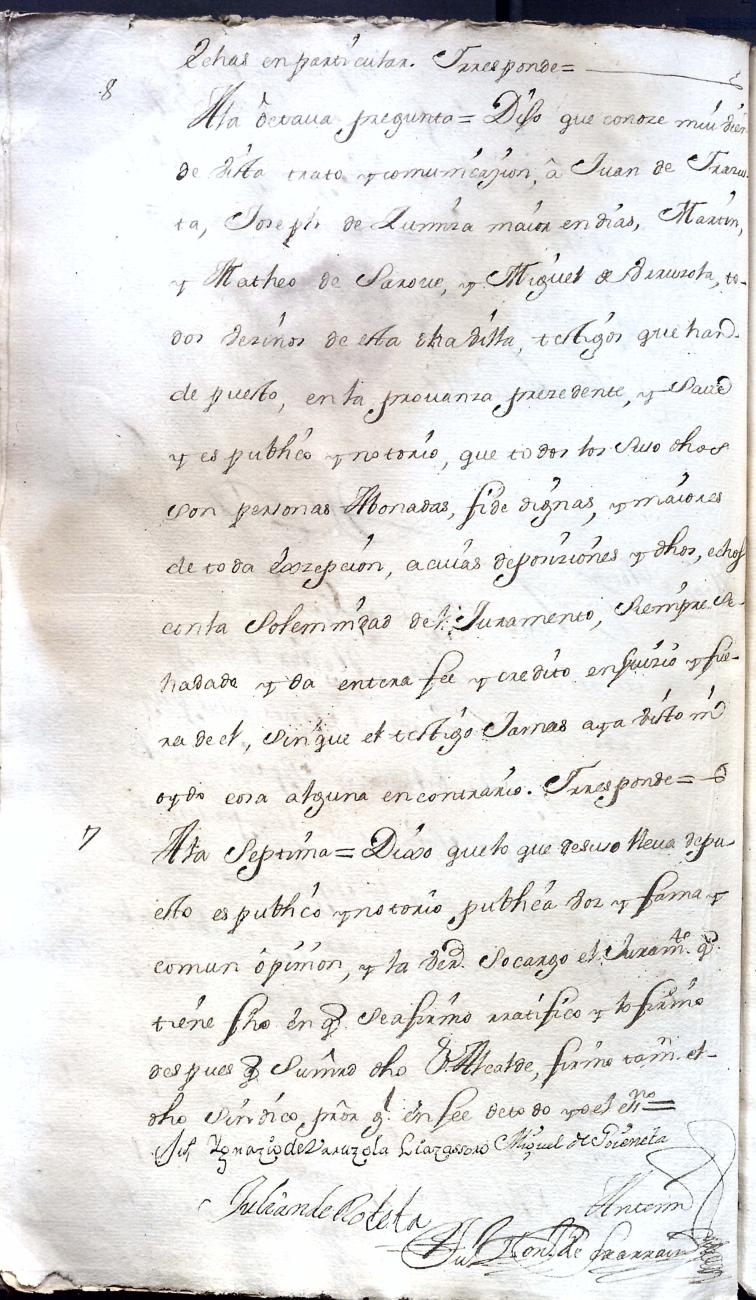 dchas en particular. Y rresponde=
8
A la octaua pregunta= Dijo que conoze mui bien
de vista trato y comunicazion, â Juan de Yrazus
ta, Joseph de Zumiza maior en dias, Martin,
y Matheo de Saroue, y Miguel de Urruzola, to-
dos vezinos de esta dha villa, testigos que han
depuesto, en la prouanza prezedente, y Saue
y es publico y notorio, que todos los suso dhos
son personas Abonadas, fide dignas, y maiores
de toda exzepcion, a cuias deposiziones y dhos, echos
con la Solemnidad del Juramento, Siempre Se
ha dado y da entera fee y credito en Juizio y fue-
ra de el, sin que el testigo Jamas aya visto ni
oydo cosa alguna en contrario. Y rresponde=
7
A la Septima= Dixo que lo que desuso lleua depu
esto es publico y notorio publica voz y fama y
comun opinion, y la verd. So cargo el Juramto. q.
tiene fho en q. Se afirmo rratifico y lo firmo
despues q. Su mrd dho Sr. Alcalde, firmo tam. el
dho Sindico pror gl. en fee de todo yo el essno=
Jph Ygnazio de Urruzola Lizazasoro Miguel de Goieneta
Julian de Roleta
Ante mi